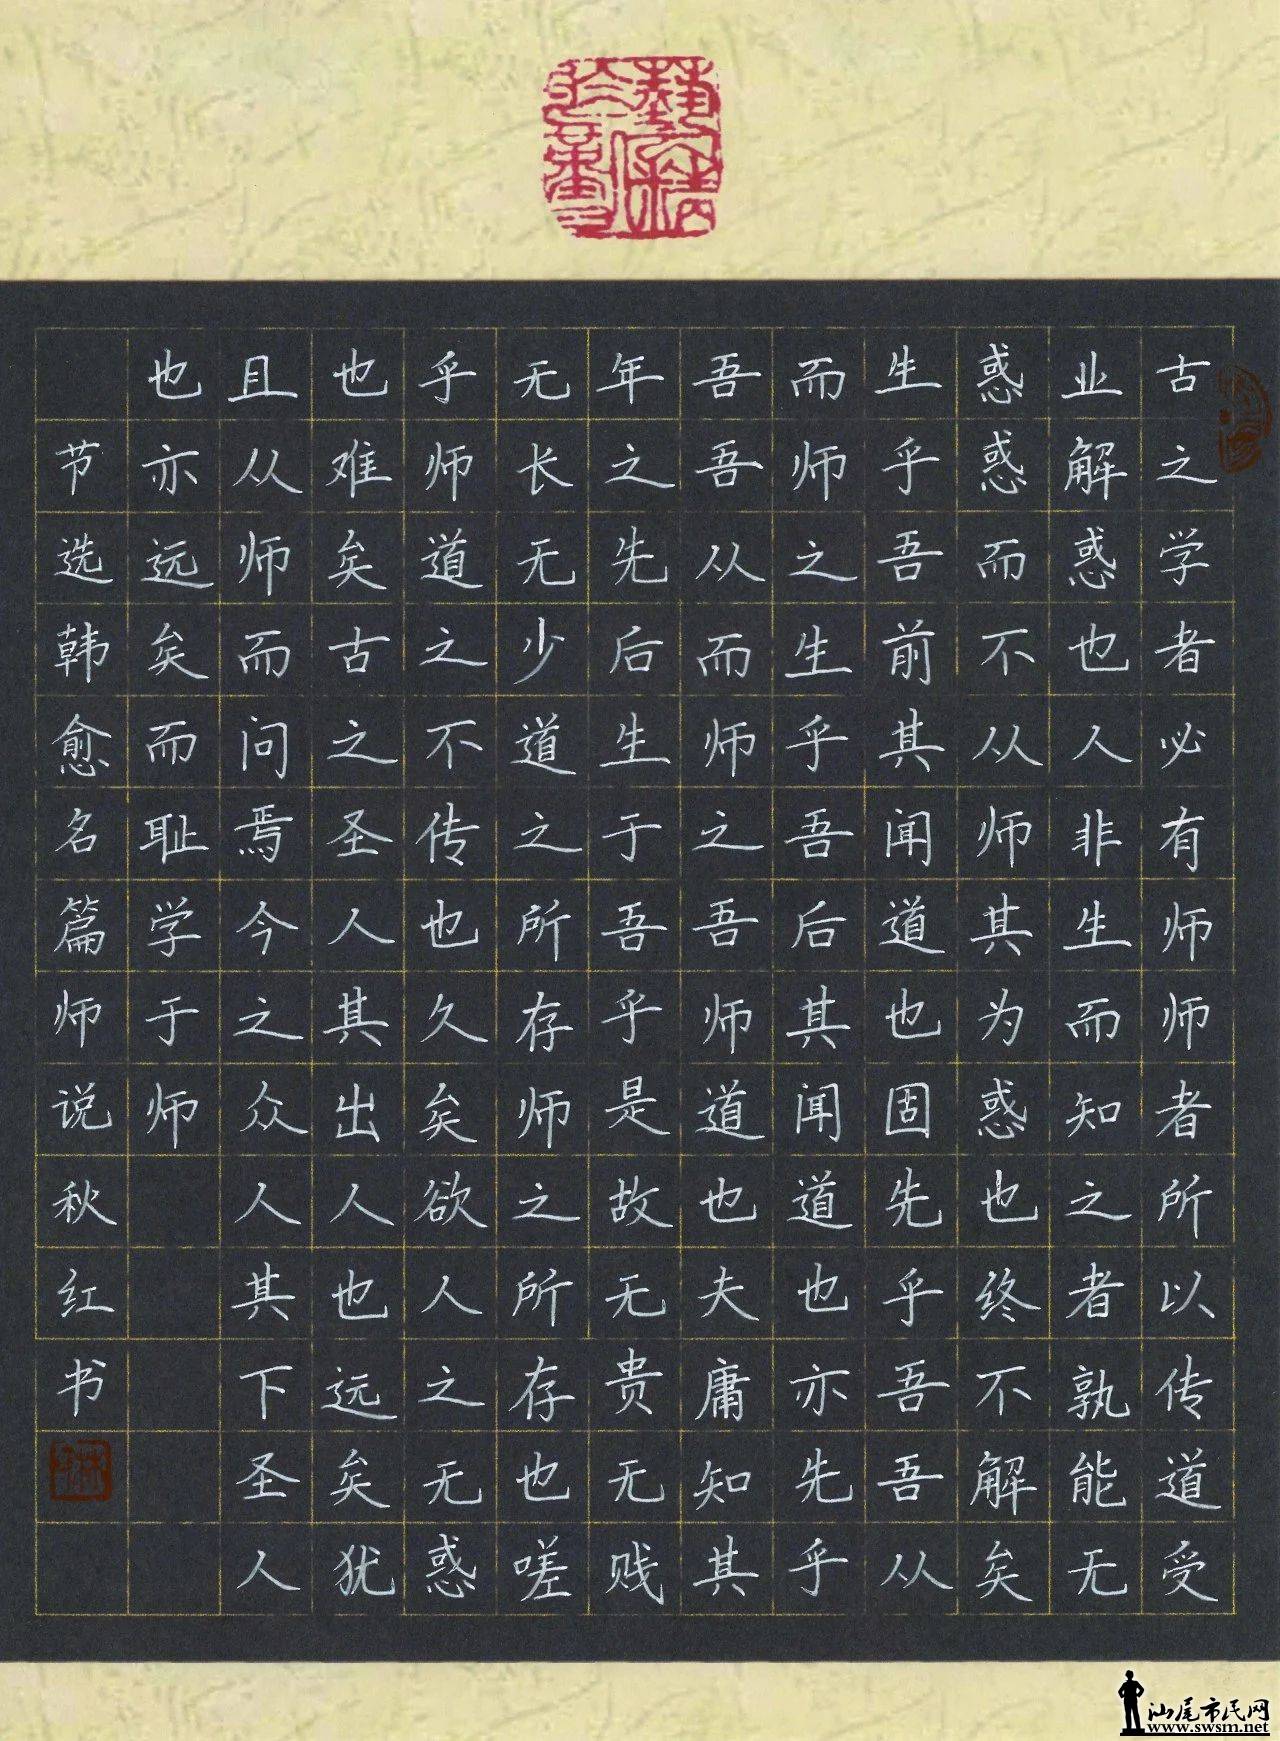 古之学者必有师师者所以传道受
业解惑也人非生而知之者孰能无
惑惑而不从师其为惑也终不解矣
生乎吾前其闻道也固先乎吾吾从
而师之生乎吾后其闻道也亦先乎
吾吾从而师之吾师道也夫庸知其
年之先后生于吾乎是故无贵无贱
无长无少道之所存师之所存也嗟
乎师道之不传也久矣欲人之无惑
也难矣古之圣人其出人也远矣犹
且从师而问焉今之众人其下圣人
也亦远矣而耻学于师
节选韩愈名篇师说秋红书
汕尾市民网
www.swsm.net